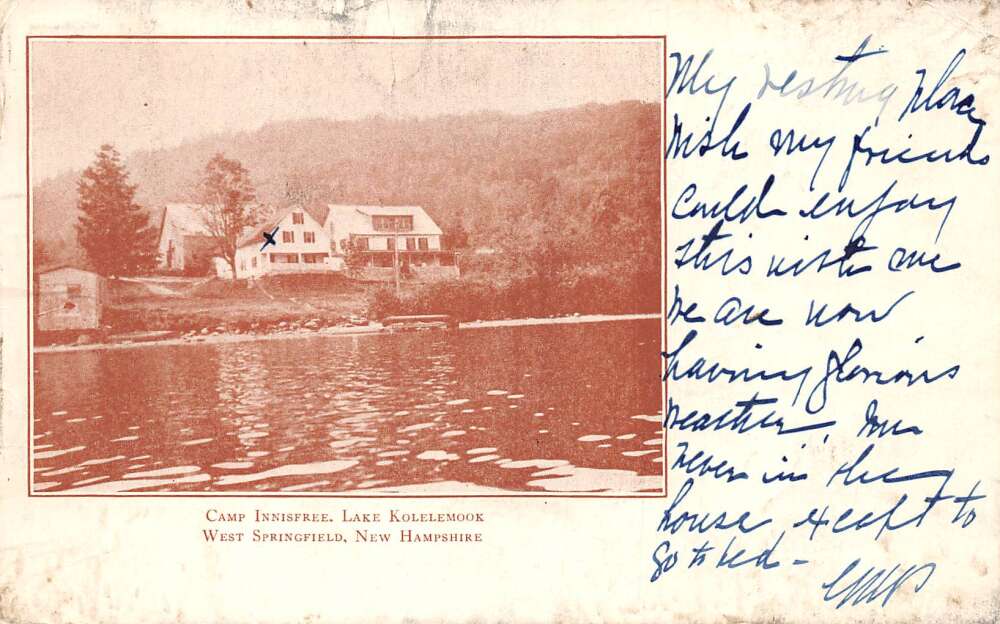 CAMP INNISFREE. LAKE KOLELEMOOK
WEST SPRINGFIELD, NEW HAMPSHIRE
My resting place
Wish my friends
could enjoy
this with me
We are now
having glorious
weather. Am
never in the
house except to
go to bed -